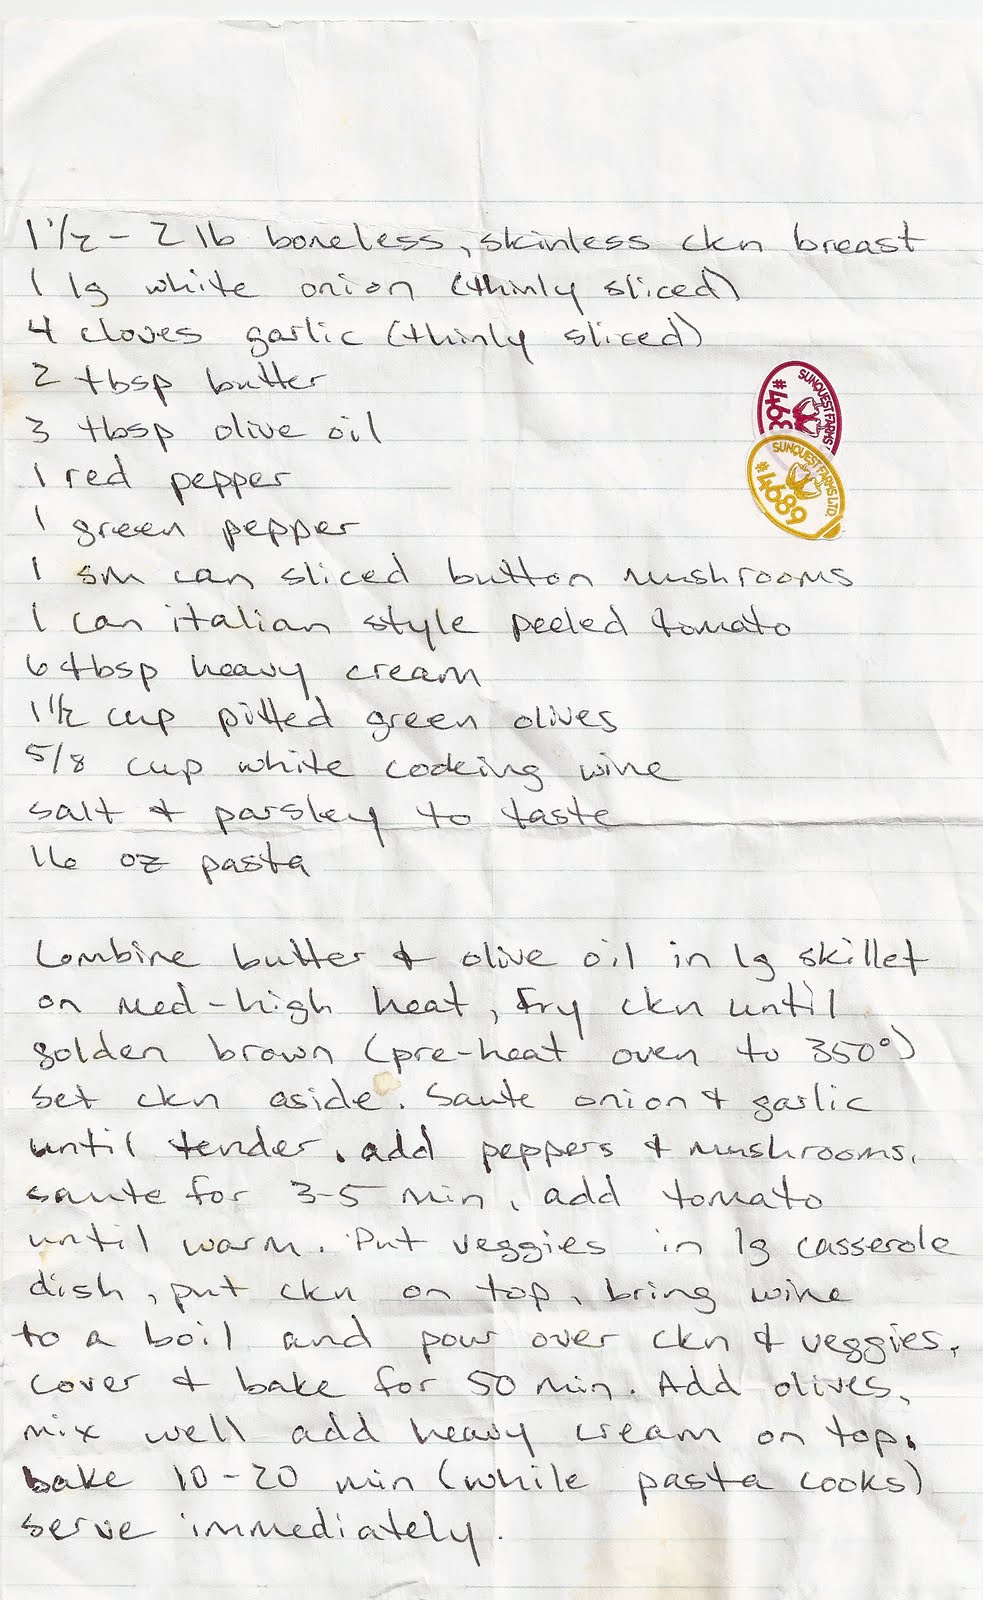 1 1/2 - 2 lb boneless, skinless ckn breast
1 lg white onion (thinly sliced)
4 cloves garlic (thinly sliced)
2 tbsp butter
3 tbsp olive oil
1 red pepper
1 green pepper
1 sm can sliced button mushrooms
1 can italian style peeled tomato
6 tbsp heavy cream
1 1/2 cup pitted green olives
5/8 cup white cooking wine
salt & parsley to taste
16 oz pasta
SUNQUEST FARMS
#468
SUNQUEST FARMS LTD.
#4689
Combine butter & olive oil in lg skillet
on med-high heat, Fry ckn until
golden brown (pre-heat oven to 350°)
Set ckn aside. Saute onion & garlic
until tender. add peppers & mushrooms.
saute for 3-5 min, add tomato
until warm. Put veggies in lg casserole
dish, put ckn on top, bring wine
to a boil and pour over ckn & veggies.
Cover & bake for 50 min. Add olives,
mix well add heavy cream on top.
bake 10-20 min (while pasta cooks)
serve immediately.